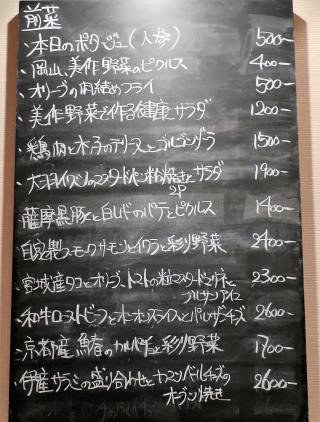 前菜
・本日のポタージュ(人参) 500-
・岡山、美作野菜のピクルス 400-
・オリーブの肉詰めフライ 500-
・美作野菜で作る健康サラダ 1200-
・鶏肉と木の子のテリーヌとゴルゴンゾーラ 1500-
・大羽イワシのマスタードパン粉焼きとサラダ 1900-
2P
・薩摩黒豚と白レバのパテとピクルス 1400-
自家製スモークサーモンとイクラと彩り野菜 2400-
・宮城産タコとオリーブ、トマトの粒マスタードマリネと 2300-
アイス
・和牛ローストビーフとオニオンスライスとパルメザンチーズ 2600-
・京都産 鰆のカルパッチョと彩り野菜 1700-
・伊産サラミの盛り合わせとカマンベールチーズの 2600-
オーブン焼き